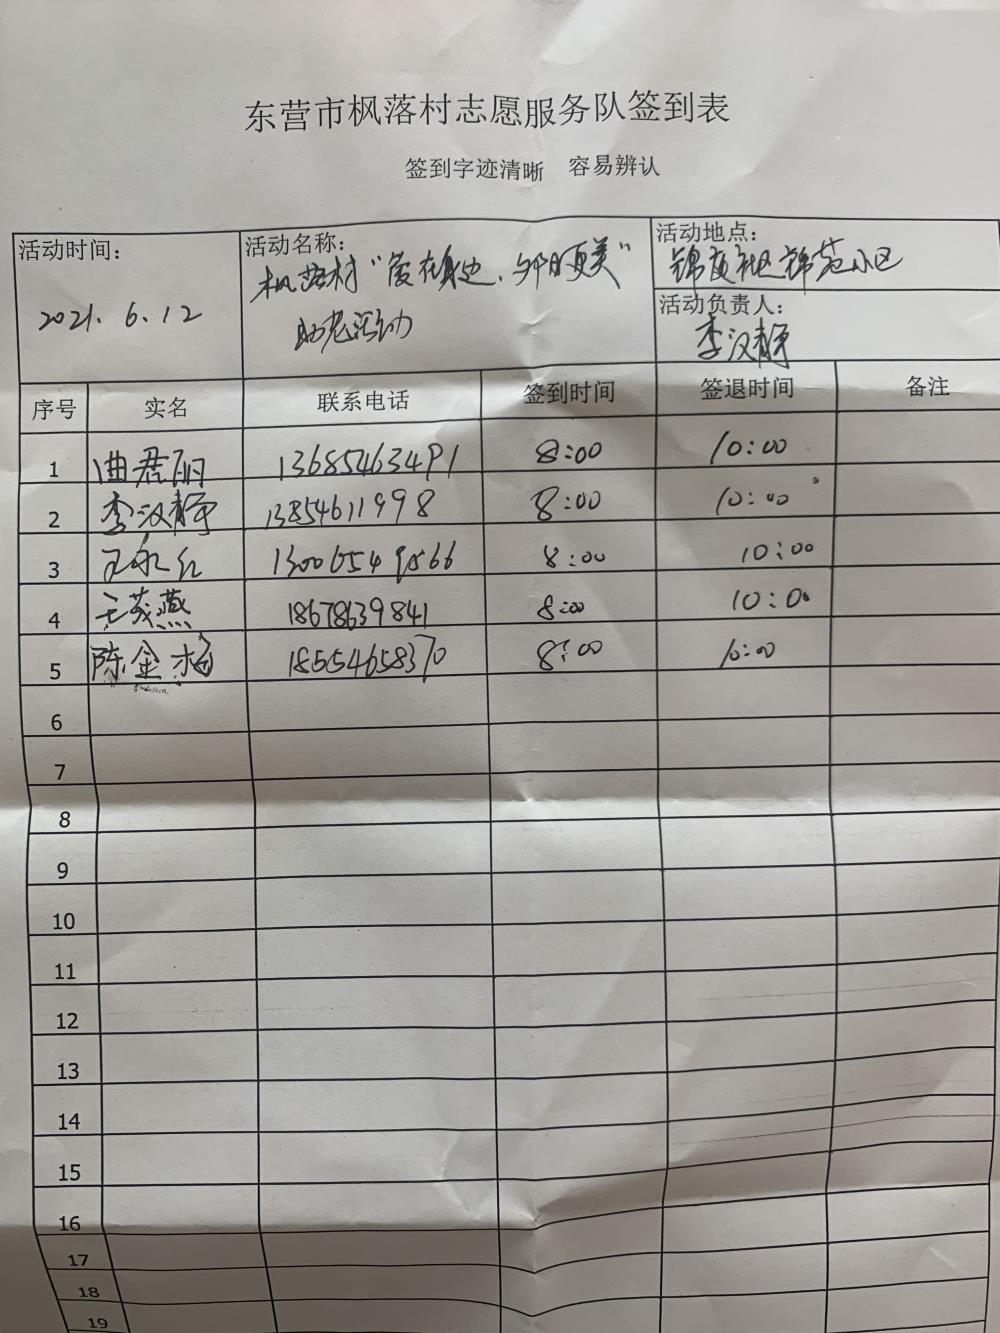 东营市枫落村志愿服务队签到表
签到字迹清晰 容易辨认
活动时间：
2021.6.12
活动名称：
枫落村“爱在身边，夕阳更美”
助老活动
活动地点：
锦苑小区
活动负责人：
李汉静
序号 实名 联系电话 签到时间 签退时间 备注
1 曲君丽 13685463491 8:00 10:00
2 李汉静 13854611998 8:00 10:00
3 王永红 8:00 10:00
4 王茂燕 18678639841 8:00 10:00
5 陈金梅 18554658370 8:00 10:00
6
7
8
9
10
11
12
13
14
15
16
17
18
19